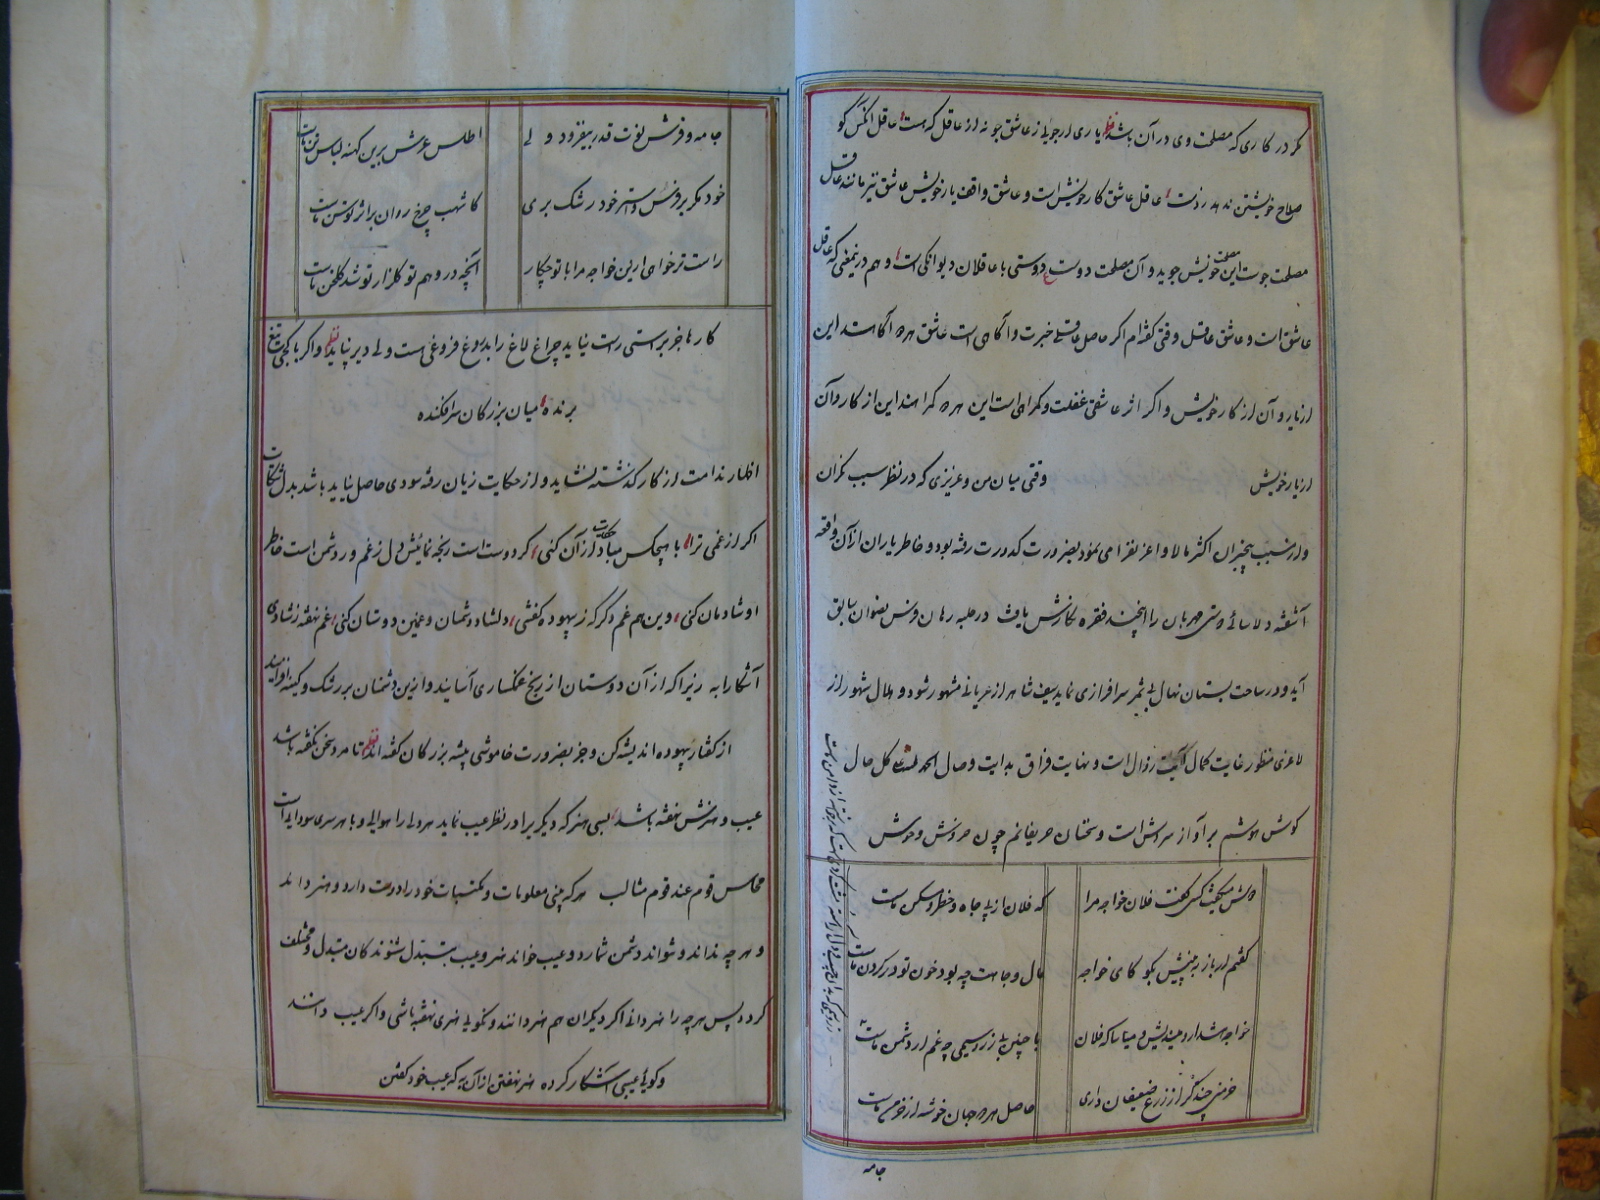 مکر در کاری که مصلحت وی در آن باشد نظم یاری ار جویی ز عاشق جو نه از عاقل که هست عاقل آنکس کو
صلاح خویشتن ندهد ز دست عاقل عاشق کار خویش است و عاشق واقف یار خویش عاشق نیز مانند عاقل
مصلحت جوست این مصلحت خویش جوید و آن مصلحت دوست ع دوستی با عاقلان دیوانگی است و هم درین معنی که عاقل
عاشق است و عاشق عاقل وقتی گفته‌ام اگر حاصل عاقلی خبرت و آگاهی است عاشق هم آگاه است این
از یار و آن از کار خویش و اگر اثر عاشقی غفلت و گمراهی است این هم گمراهند این از کار و آن
از یار خویش وقتی میان من و عزیزی که در نظر سبب نگران
و از سبب بیخبران اکثر مالا و اعز نفرا می‌نمود بضرورت کدورت رفته بود و خاطر یاران از آن واقعه
آشفته دلاسائی دوستی مهربان را این چند فقره نگارش یافت در حلبه رهان فرس بضوان سابق
آید و در ساحت بستان نهال بی ثمر سرافرازی نماید سیف شاهر از عریانی مشهور شود و هلال شهور از
لاغری منظور غایت کمال آیت زوال است و نهایت فراق بدایت وصال الحمد لله علی کل حال
گوش هوشم بر آواز سروش است و سخنان حریفانم چون خروش وحوش
دوش شخصی گفت فلان خواجه مرا که فلان از پی جاه و خطر و مسکن ماست
گفتم ار باز به بینیش بگو کای خواجه مال و جاهت چه بود خون تو در گردن ماست
خواجه هشدار و میندیش و میاسا که فلان با چنین بی زر و سیمی چه غم ار دشمن ماست
خرمنی چند گر از زرع ضعیفان داری حاصل هر دو جهان خوشه از خرمن ماست
جامه
جامه و فرش توت قدر بیفزود ولی اطلس عرش برین کهنه لباس تن ماست
خود مگر بر فرس و استر خود رشک بری کاشهب چرخ روان بر اثر توسن ماست
راست تر خواهی ازین خواجه مرا با تو چکار آنچه در وهم تو گلزار تو شد گلخن ماست
کارها جز براستی راست نیاید چراغ لاغ را بدروغ فروغی است ولی دیر نپاید نظم و اگر با کجی تیغ
برنده میان بزرگان سرافکنده
اظهار ندامت از کار گذشته نشاید و از حکایت زیان رفته سودی حاصل نیاید باشد بدل شکایت
اگر از غمی ترا با هیچکس مباد حکایت از آن کنی گر دوست است رنجه نمائیش دل ز غم ور دشمن است خاطر
او شادمان کنی وین هم غم دگر که ز بیهوده گفتنی دلشاد دشمنان و غمین دوستان کنی غم نهفته ز شادی
آشکارا به زیرا که از آن دوستان از رنج غمگساری آسایند و ازین دشمنان بر رشک و کینه افزایند
از گفتار بیهوده اندیشه کن و جز بضرورت خاموشی پیشه بزرگان گفته‌اند نظم تا مرد سخن نگفته باشد
عیب و هنرش نهفته باشد بسی هنر که دیگریرا در نظر عیب نماید هر دلی را هوایی و با هر سری سودایی است
محاسن قوم عند قوم مثالب هر که بینی معلومات و مکتسبات خود را دوست دارد و هنر داند
و هر چه نداند و نتواند دشمن شمارد و عیب خواند هنر و عیب بتبدل شنوندگان متبدل و مختلف
گردد پس هر چه را هنر دانی اگر دیگران هم هنر دانند و نگویی هنری نهفته باشی و اگر عیب دانند
و گویی عیبی آشکار کرده هنر نهفتن از آن به که عیب خود گفتن